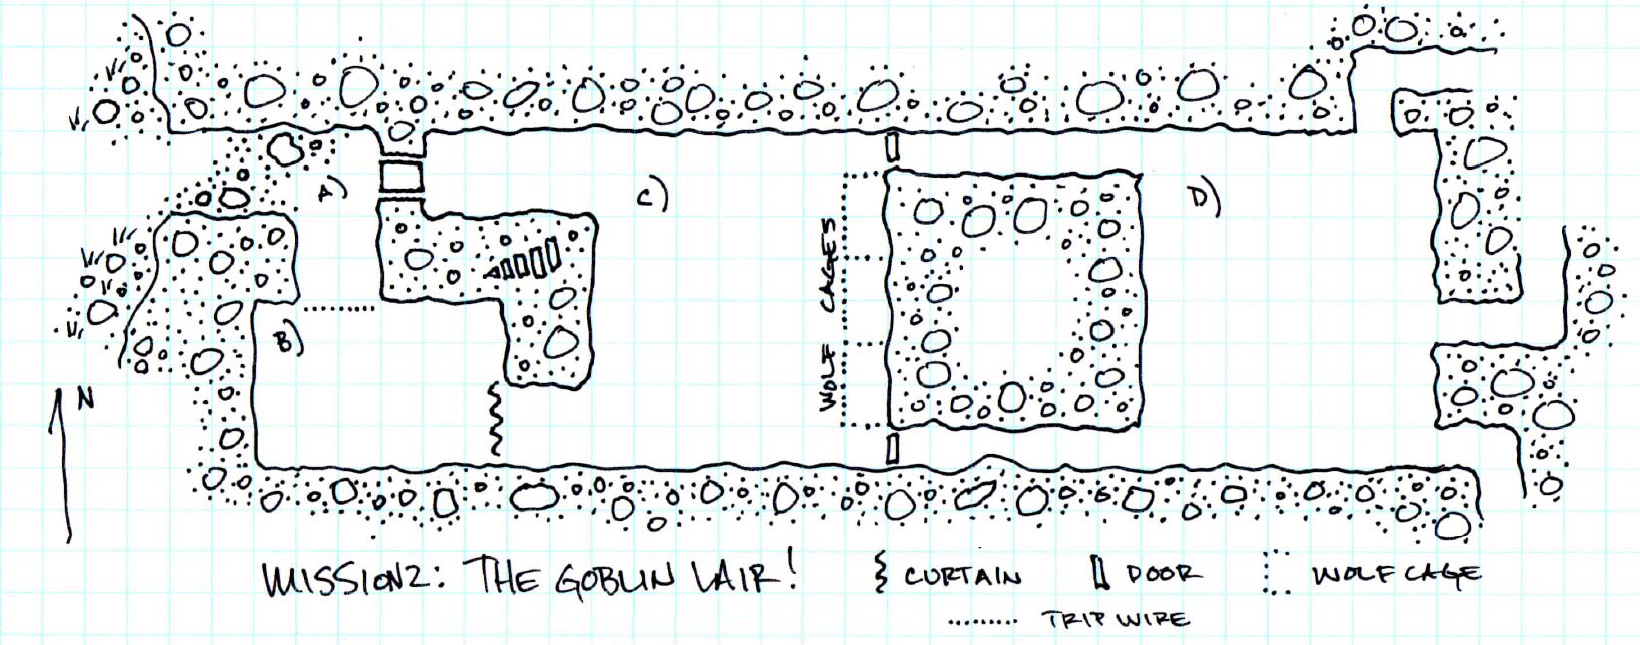 A)
C)
D)
WOLF CAGES
B)
N
MISSION2: THE GOBLIN LAIR!
CURTAIN
DOOR
WOLF CAGE
TRIP WIRE